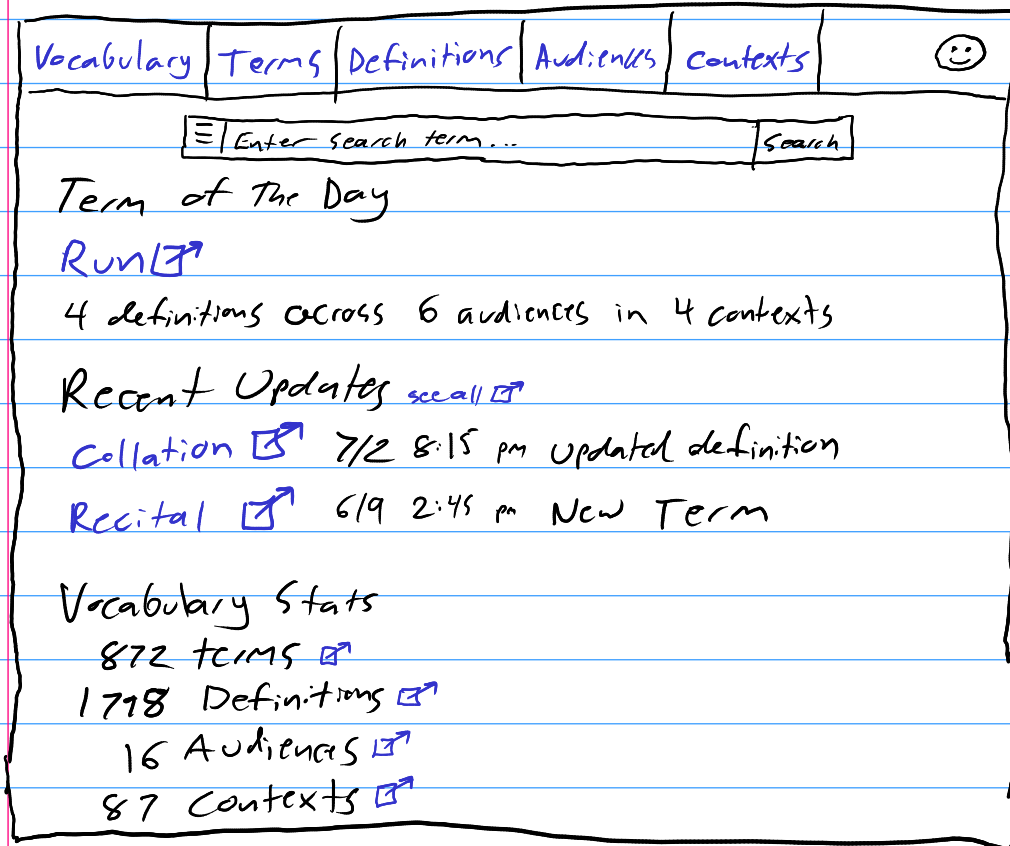 Vocabulary Terms Definitions Audiences Contexts
Enter search term... Search
Term of the Day
Run
4 definitions across 6 audiences in 4 contexts
Recent Updates see all
Collation 7/2 8:15 pm updated definition
Recital 6/9 2:45 pm New Term
Vocabulary Stats
872 terms
1798 Definitions
16 Audiences
87 Contexts